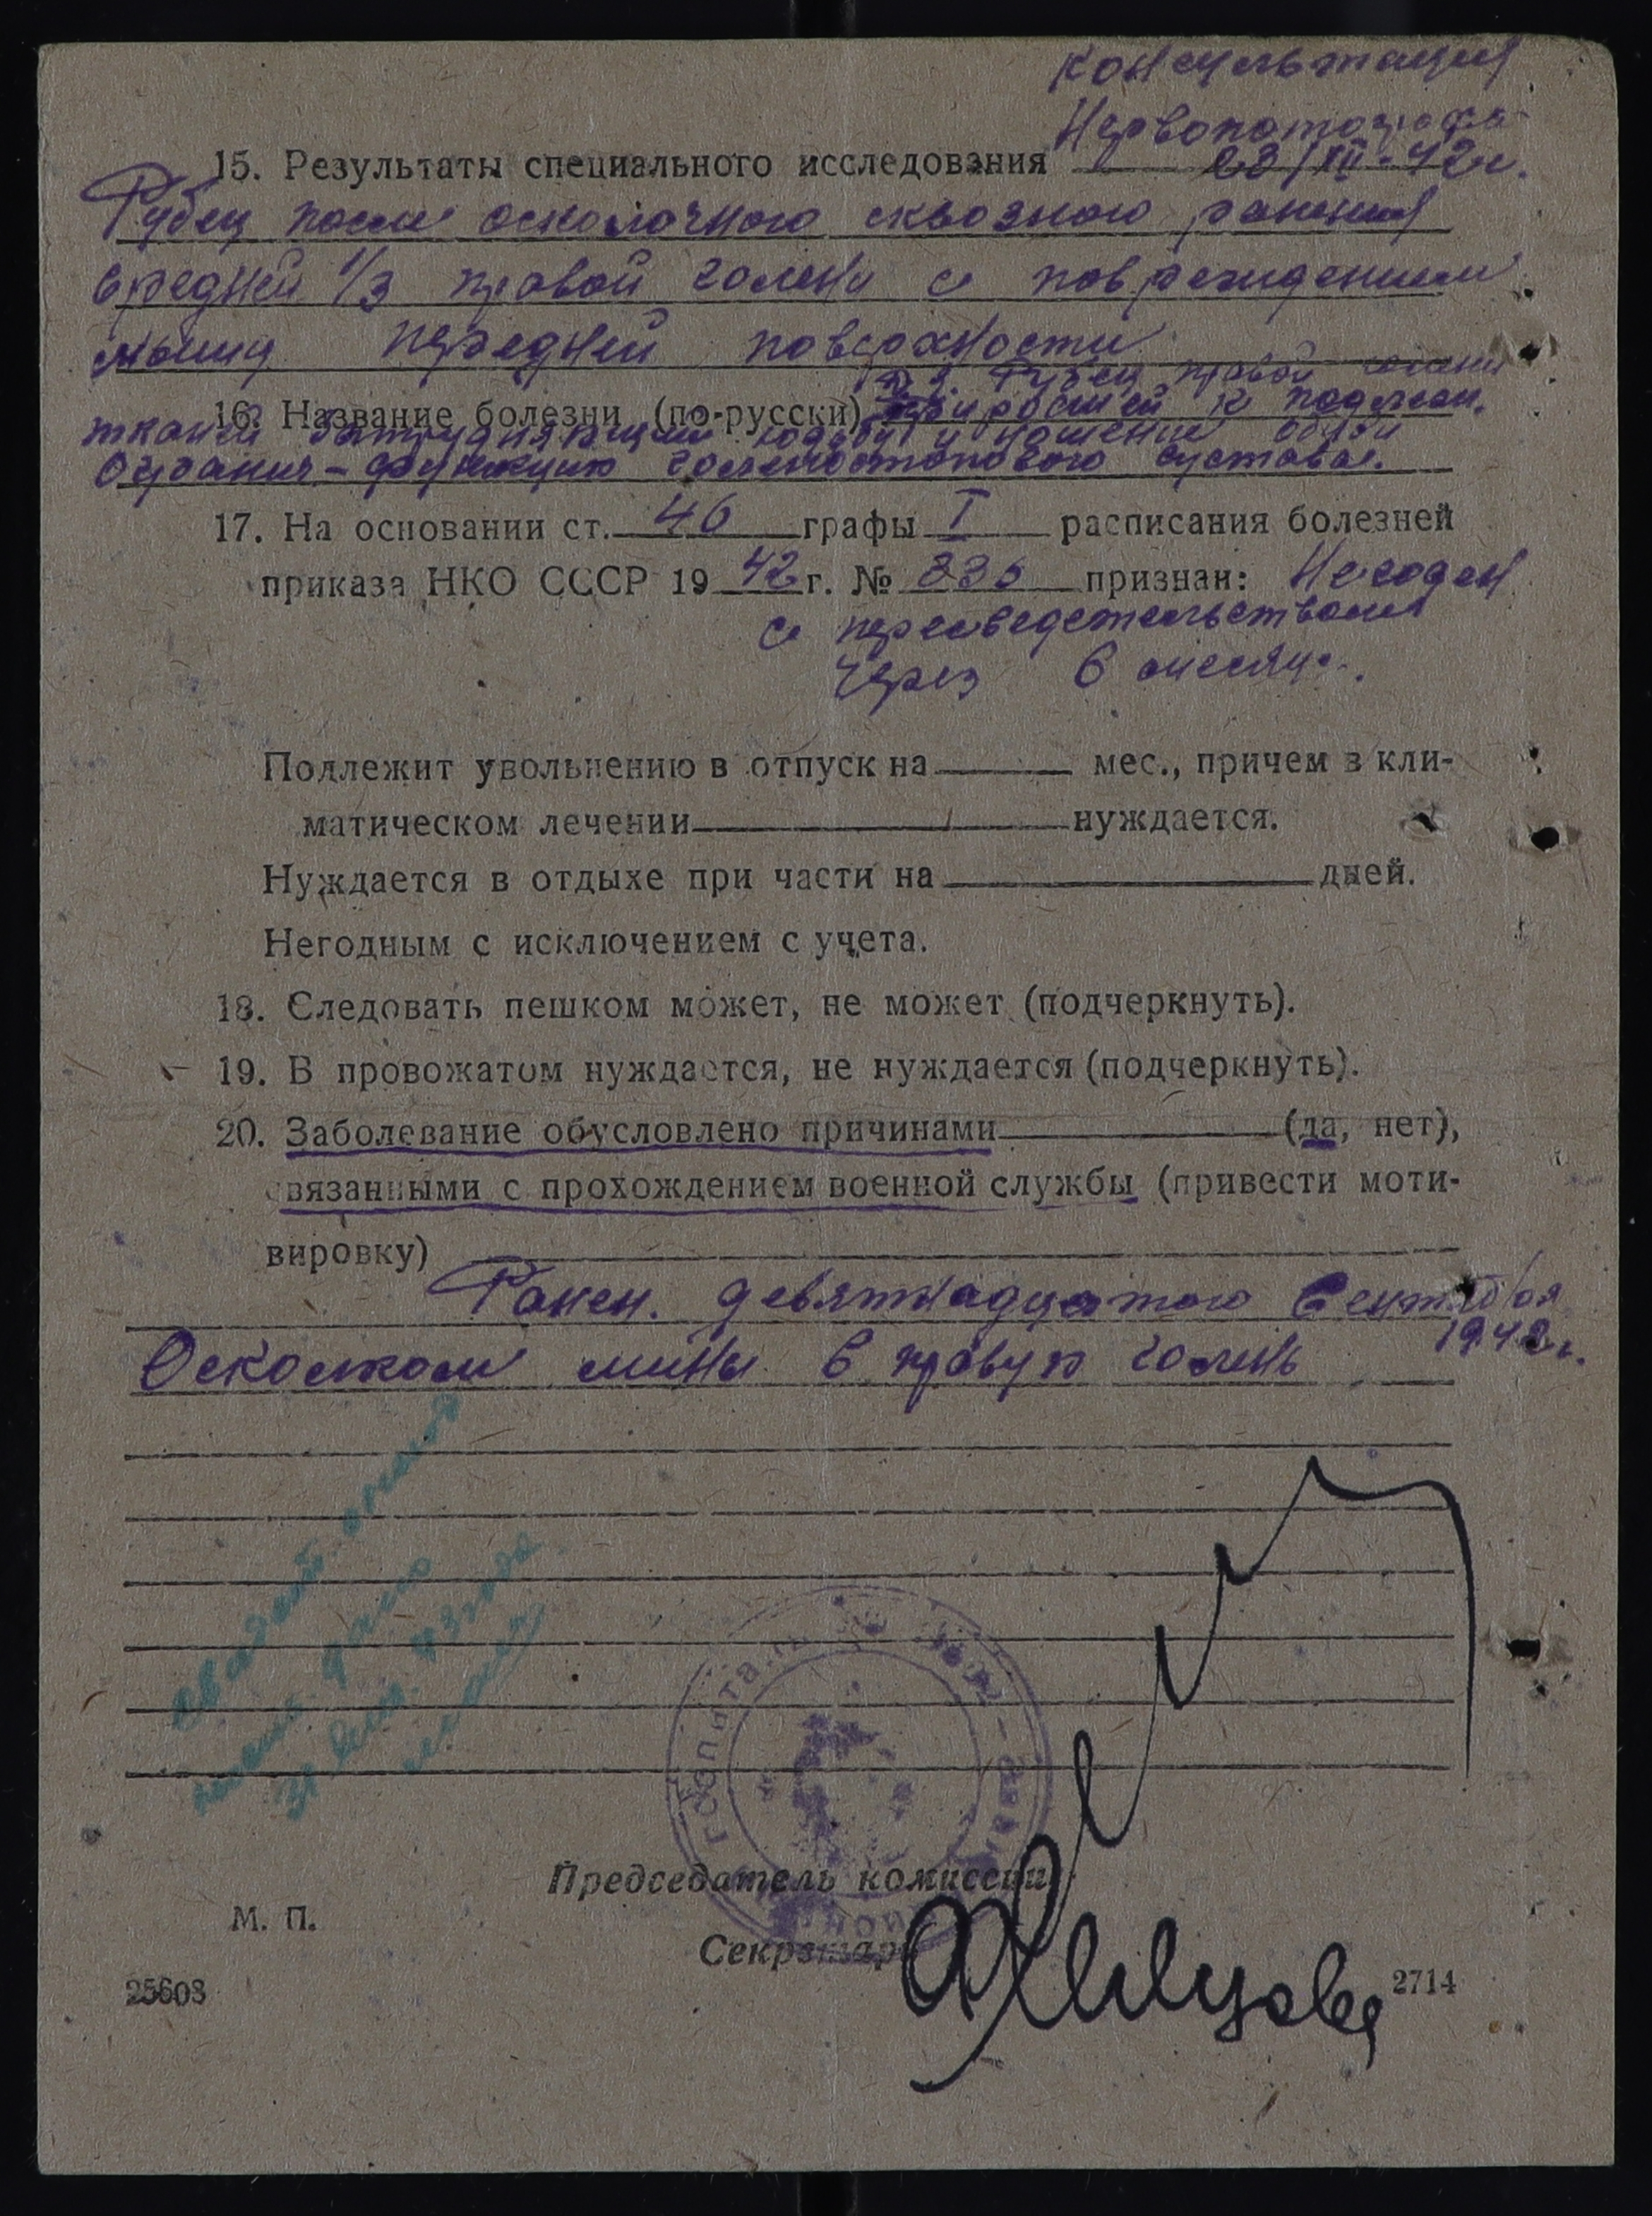 Консультация
Нервопатолога
15. Результаты специального исследования 23/XII-42г.
Рубец после осколочного сквозного ранения
средней 1/3 правой голени с повреждением
мышц передней поверхности
Рубец правой голени
16. Название болезни (по-русски) приросший к подлежащ.
ткани затрудняющий ходьбу и ношение обуви
функцию голеностопового сустава.
17. На основании ст. 46 графы I расписания болезней
приказа НКО СССР 1942 г. № 336 признан: Негоден
с переосведетельствован
через 6 месяц.
Подлежит увольнению в отпуск на мес., причем в кли-
матическом лечении нуждается.
Нуждается в отдыхе при части на дней.
Негодным с исключением с учета.
18. Следовать пешком может, не может (подчеркнуть).
19. В провожатом нуждается, не нуждается (подчеркнуть).
20. Заболевание обусловлено причинами (да, нет),
связанными с прохождением военной службы (привести моти-
вировку)
Ранен. девятнадцатого Сентября
1942г.
Осколком мины в правую голень
Председатель комиссии
М. П.
Секретарь
25608
2714